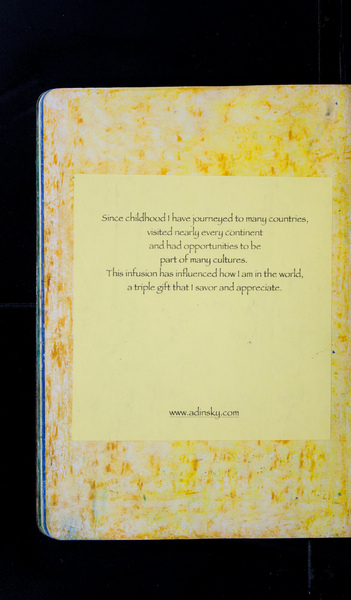 Since childhood I have journeyed to many countries,
visited nearly every continent
and had opportunities to be
part of many cultures.
This infusion has influenced how I am in the world,
a triple gift that I savor and appreciate.
www.adinsky.com